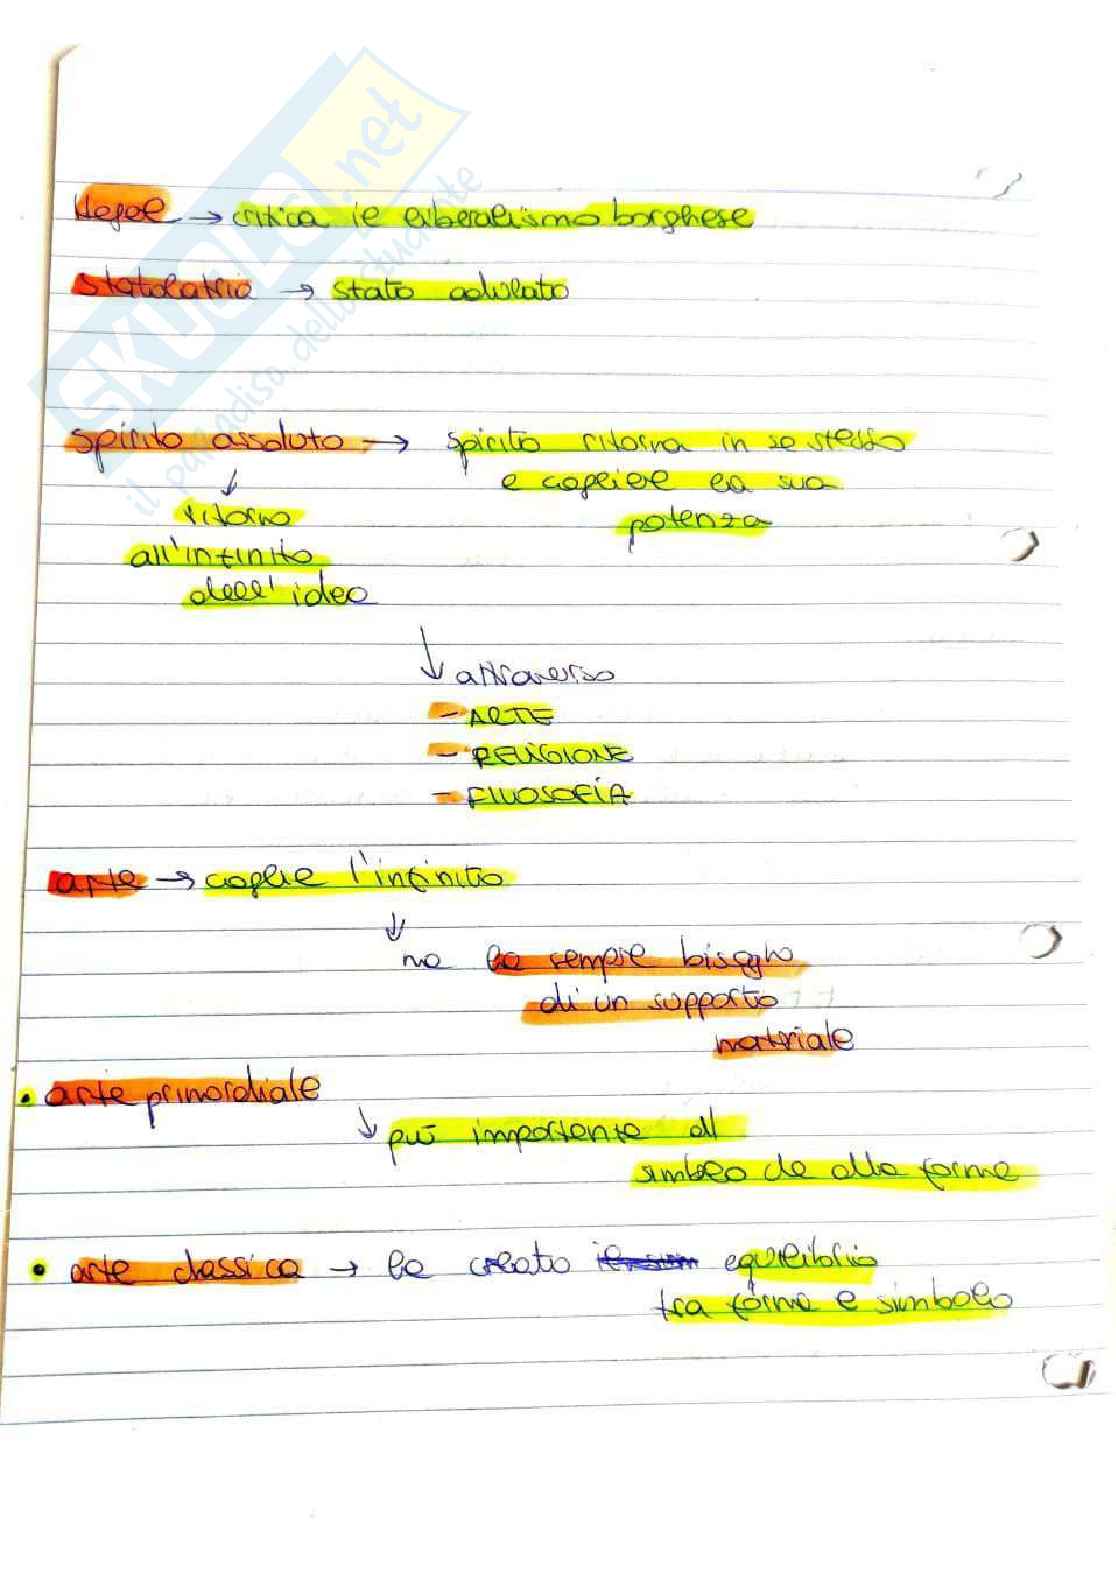 SKUOLA.net
il paradiso dello studente
Hegel → critica il liberalismo borghese
statolatria → stato adulato
spirito assoluto → spirito ritorna in se stesso
e coglie la sua
potenza
↓
ritorno
all'infinito
dell'idea
↓ attraverso
- ARTE
- RELIGIONE
- FILOSOFIA
arte → coglie l'infinito
↓
ma ha sempre bisogno
di un supporto
materiale
• arte primordiale
↓ più importante il
simbolo che alla forma
• arte classica → ha creato equilibrio
tra forma e simbolo